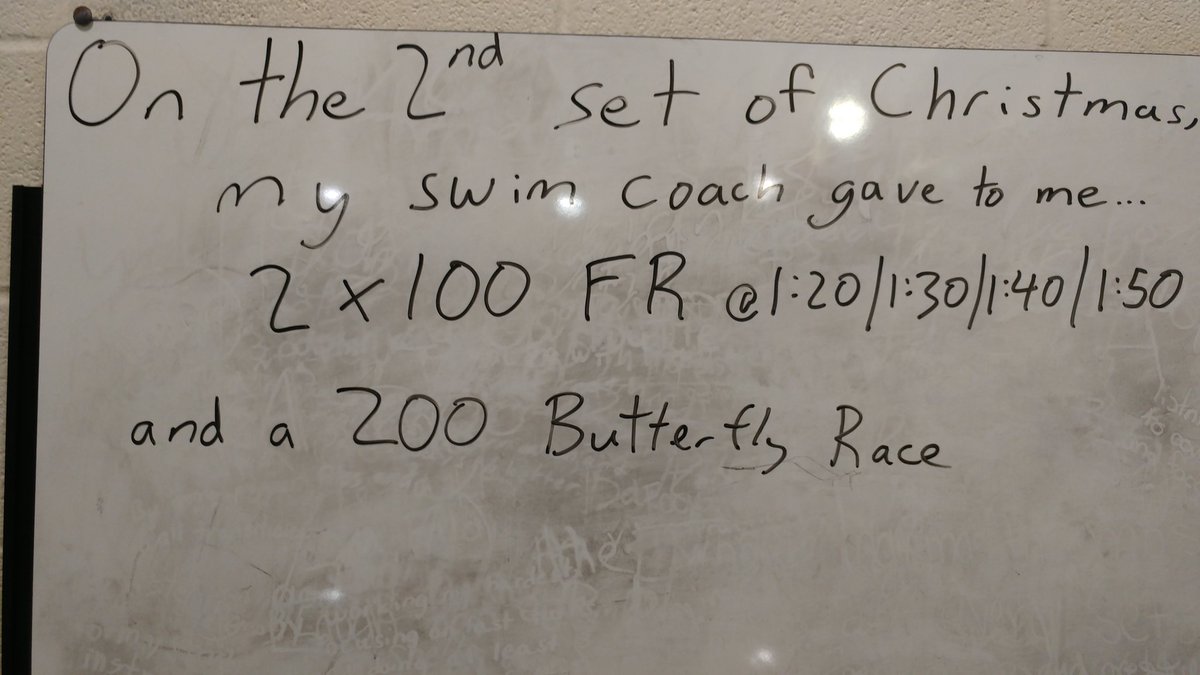 On the 2nd set of Christmas,
my swim coach gave to me...
2 x 100 FR @1:20/1:30/1:40/1:50
and a 200 Butterfly Race